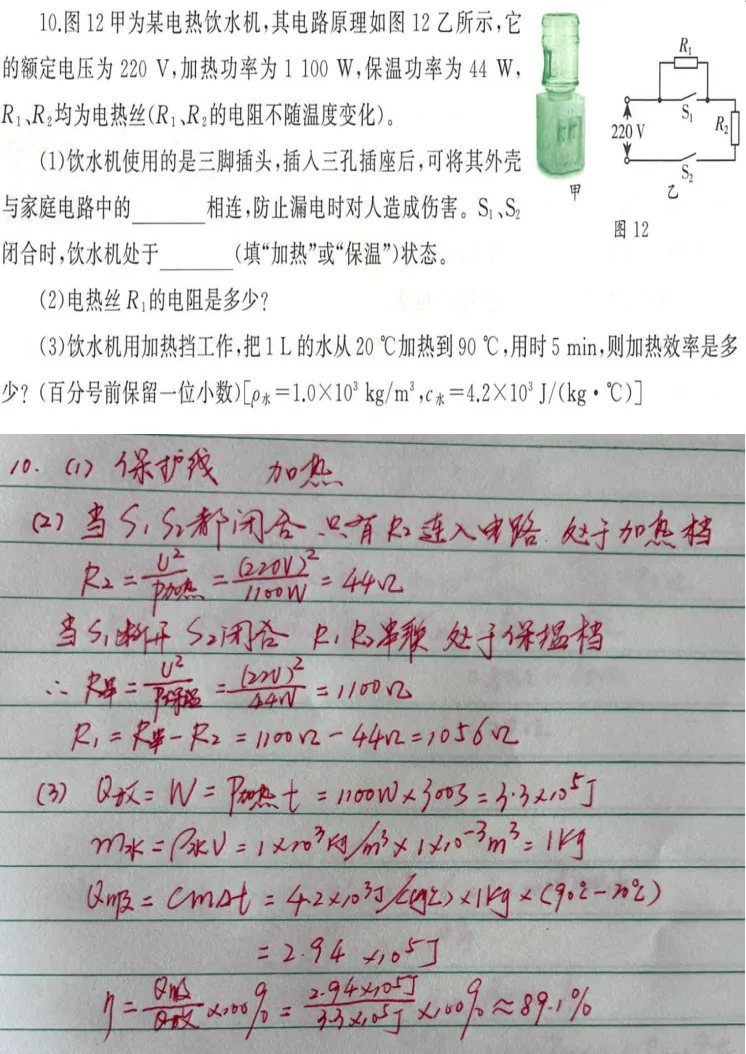 10.图12甲为某电热饮水机,其电路原理如图12乙所示,它
的额定电压为220 V,加热功率为1 100 W,保温功率为44 W,
R₁、R₂均为电热丝(R₁、R₂的电阻不随温度变化)。
(1)饮水机使用的是三脚插头,插入三孔插座后,可将其外壳
与家庭电路中的______相连,防止漏电时对人造成伤害。S₁、S₂
闭合时,饮水机处于______(填“加热”或“保温”)状态。
R₁
S₁
R₂
220 V
S₂
甲
乙
图12
(2)电热丝R₁的电阻是多少?
(3)饮水机用加热挡工作,把1 L的水从20 ℃加热到90 ℃,用时5 min,则加热效率是多
少?(百分号前保留一位小数)[ρ水=1.0×10³ kg/m³,c水=4.2×10³ J/(kg·℃)]
10. (1) 保护线 加热
(2) 当S₁S₂都闭合 只有R₂连入电路. 处于加热档
R₂=U²/P加热=(220V)²/1100W=44Ω
当S₁断开 S₂闭合 R₁R₂串联 处于保温档
∴ R串=U²/P保温=(220)²/44W=1100Ω
R₁=R串-R₂=1100Ω-44Ω=1056Ω
(3) Q放=W=P加热t=1100W×300S=3.3×10⁵J
m水=ρ水V=1×10³kg/m³×1×10⁻³m³=1kg
Q吸=cmΔt=4.2×10³J/(kg℃)×1kg×(90℃-20℃)
=2.94×10⁵J
η=Q吸/Q放×100%=2.94×10⁵J/3.3×10⁵J×100%≈89.1%